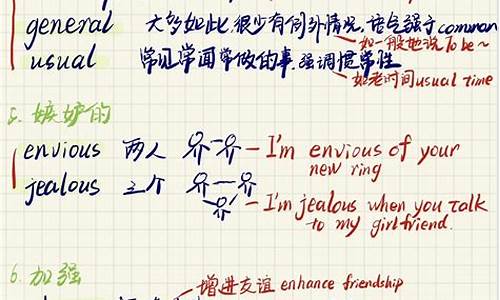 general 大多如此,很少有例外情况,语气强于common
如一般地说To be~
usual 常见常闻常做的事,强调惯常性
如老时间usual time
5. 嫉妒的
envious 两人 —I'm envious of your
new ring
jealous 三个
—I'm jealous when you talk
to my girlfriend.
6. 加强
增进友谊 enhance friendship